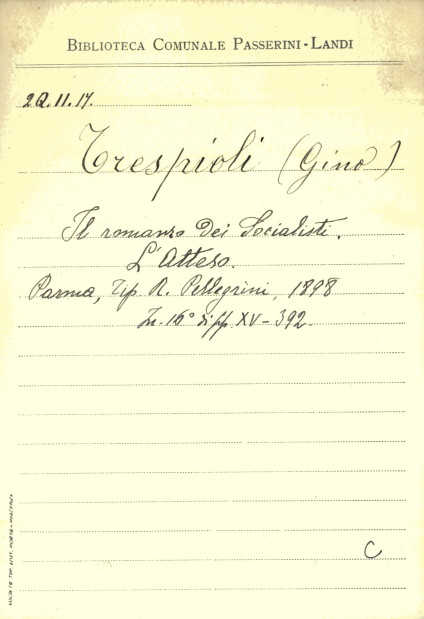 BIBLIOTECA COMUNALE PASSERINI-LANDI
2Q.11.17.
Trespioli (Gino)
Il romanzo dei Socialisti.
L'Atteso.
Parma, Tip. R. Pellegrini, 1898
In-16° di pp. XV-392.
C